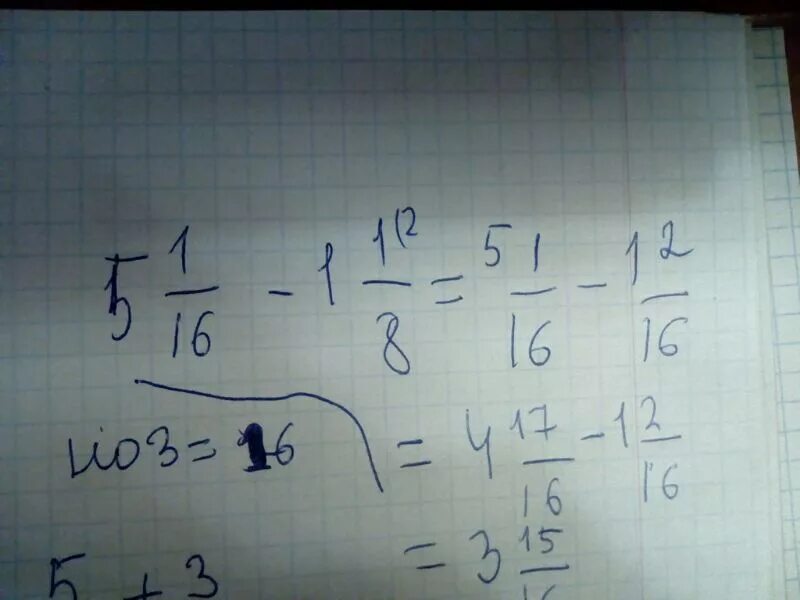 5 1/16 - 1 1(2/8 = 5 1/16 - 1 2/16
НОЗ = 16
= 4 17/16 - 1 2/16
= 3 15/16
5 + 3